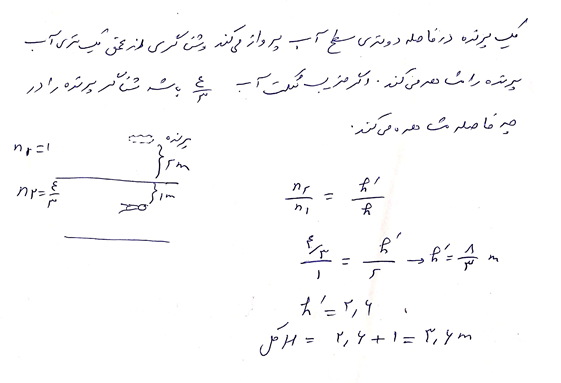 یک پرنده در فاصله دو متری سطح آب پرواز می‌کند و شناگری از عمق یک متری آب
پرنده را مشاهده می‌کند. اگر ضریب شکست آب ۴/۳ باشد شناگر پرنده را در
چه فاصله مشاهده می‌کند.
پرنده
n۲=1
۲m
n۲=۴/۳
1m
n۲/n1 = h'/h
۴/۳/1 = h'/۲ → h'=۸/۳ m
h'=۲,۶
H کل = ۲,۶+1=۳,۶m